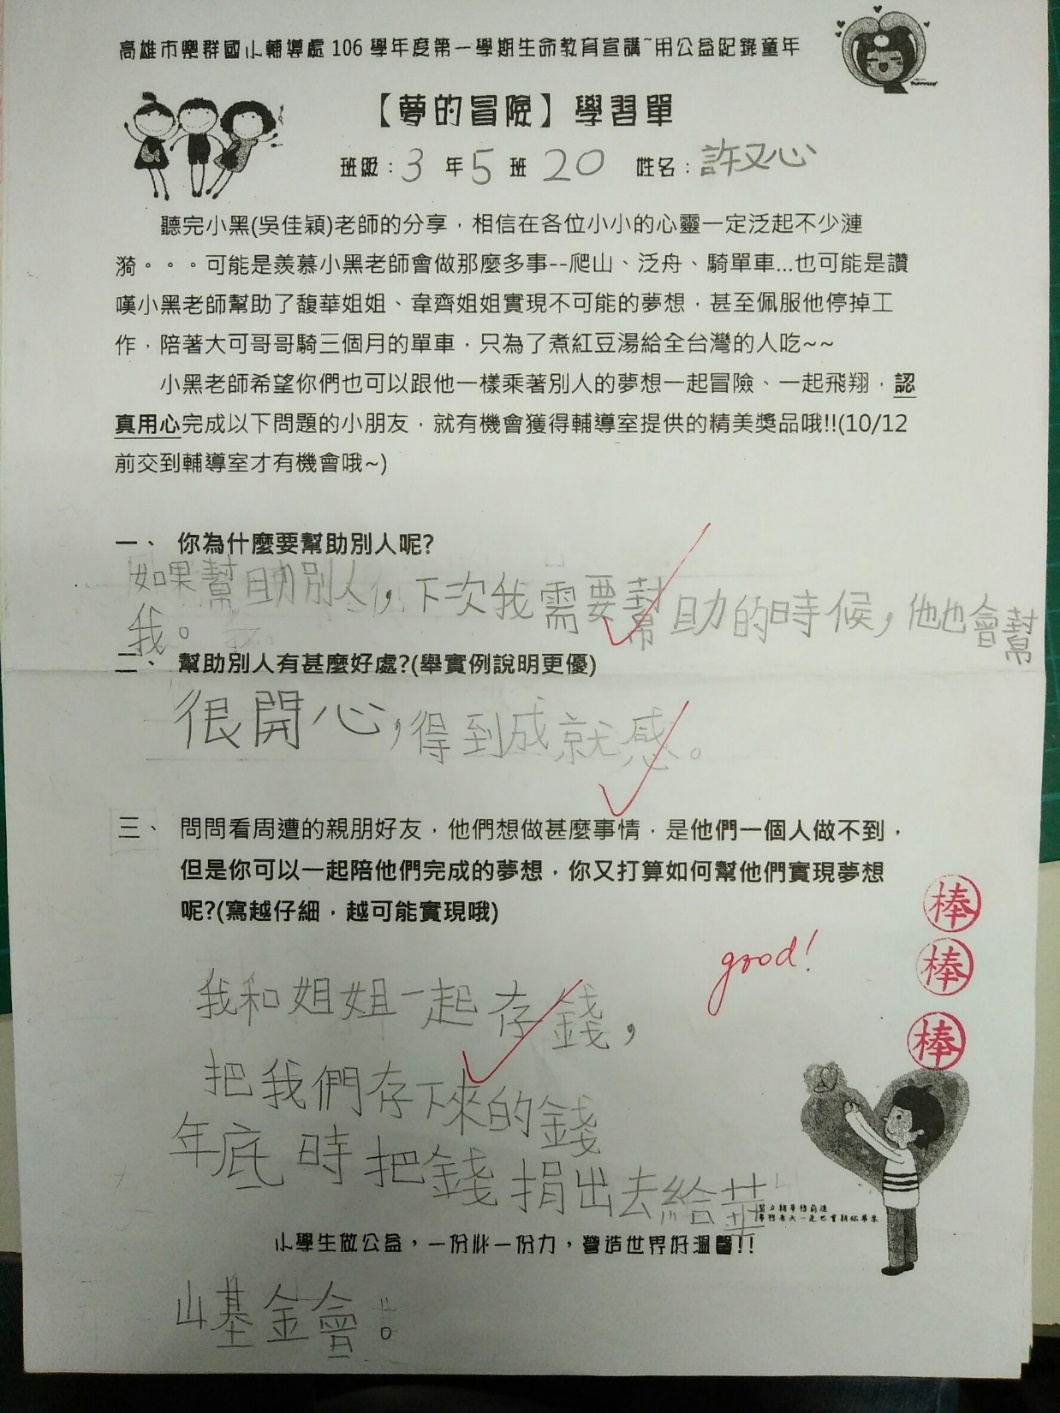 高雄市樂群國小輔導處106學年度第一學期生命教育宣講~用公益記錄童年
【夢的冒險】學習單
班級：3年5班 20 姓名：許又心
聽完小黑(吳佳穎)老師的分享，相信在各位小小的心靈一定泛起不少漣
漪。。。可能是羨慕小黑老師會做那麼多事--爬山、泛舟、騎單車...也可能是讚
嘆小黑老師幫助了馥華姐姐、韋齊姐姐實現不可能的夢想，甚至佩服他停掉工
作，陪著大可哥哥騎三個月的單車，只為了煮紅豆湯給全台灣的人吃~~
小黑老師希望你們也可以跟他一樣乘著別人的夢想一起冒險、一起飛翔，認
真用心完成以下問題的小朋友，就有機會獲得輔導室提供的精美獎品哦!!(10/12
前交到輔導室才有機會哦~)
一、 你為什麼要幫助別人呢?
如果幫助別人，下次我需要幫助的時候，他也會幫
我。
二、 幫助別人有甚麼好處?(舉實例說明更優)
很開心，得到成就感。
三、 問問看周遭的親朋好友，他們想做甚麼事情，是他們一個人做不到，
但是你可以一起陪他們完成的夢想，你又打算如何幫他們實現夢想
呢?(寫越仔細，越可能實現哦)
棒
good!
棒
我和姐姐一起存錢，
棒
把我們存下來的錢
年底時把錢捐出去給華
小學生做公益，一份心一份力，營造世界好溫馨!!
山基金會。